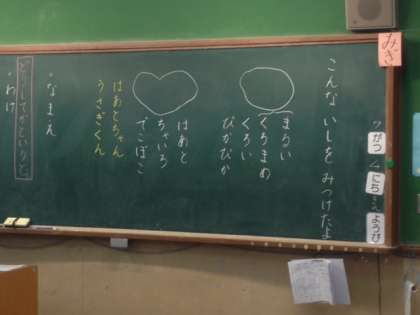 みぎ
がつ にち ようび
こんな いしを みつけたよ
まるい
くろまめ
くろい
ぴかぴか
はあと
ちゃいろ
でこぼこ
はあとちゃん
うさぎくん
・なまえ
どうしてかというと、
・わけ